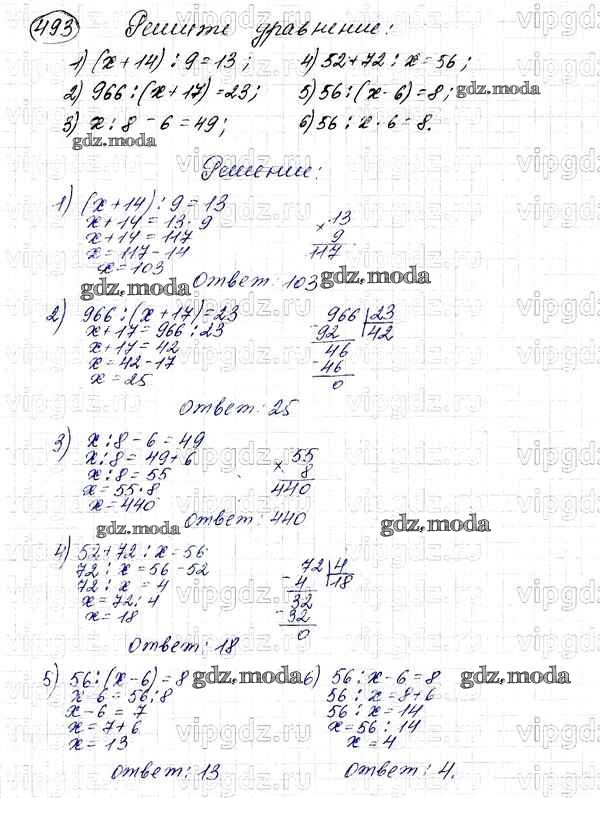 493 Решите уравнение:
1) (x+14):9=13; 4) 52+72:x=56;
2) 966:(x+17)=23; 5) 56:(x-6)=8; gdz.moda
3) x:8-6=49; 6) 56:x-6=8.
gdz.moda
Решение:
1) (x+14):9=13
x+14=13·9
x+14=117
x=117-14
x=103
× 13
9
117
gdz.moda Ответ: 103 gdz.moda
2) 966:(x+17)=23
x+17=966:23
x+17=42
x=42-17
x=25
966 23
- 92 42
46
- 46
0
Ответ: 25
3) x:8-6=49
x:8=49+6
x:8=55
x=55·8
x=440
× 55
8
440
gdz.moda Ответ: 440 gdz.moda
4) 52+72:x=56
72:x=56-52
72:x=4
x=72:4
x=18
- 72 4
4 18
32
- 32
0
Ответ: 18
5) 56:(x-6)=8 gdz.moda
x-6=56:8
x-6=7
x=7+6
x=13
Ответ: 13
6) 56:x-6=8 gdz.moda
56:x=8+6
56:x=14
x=56:14
x=4
Ответ: 4.
vipgdz.ru